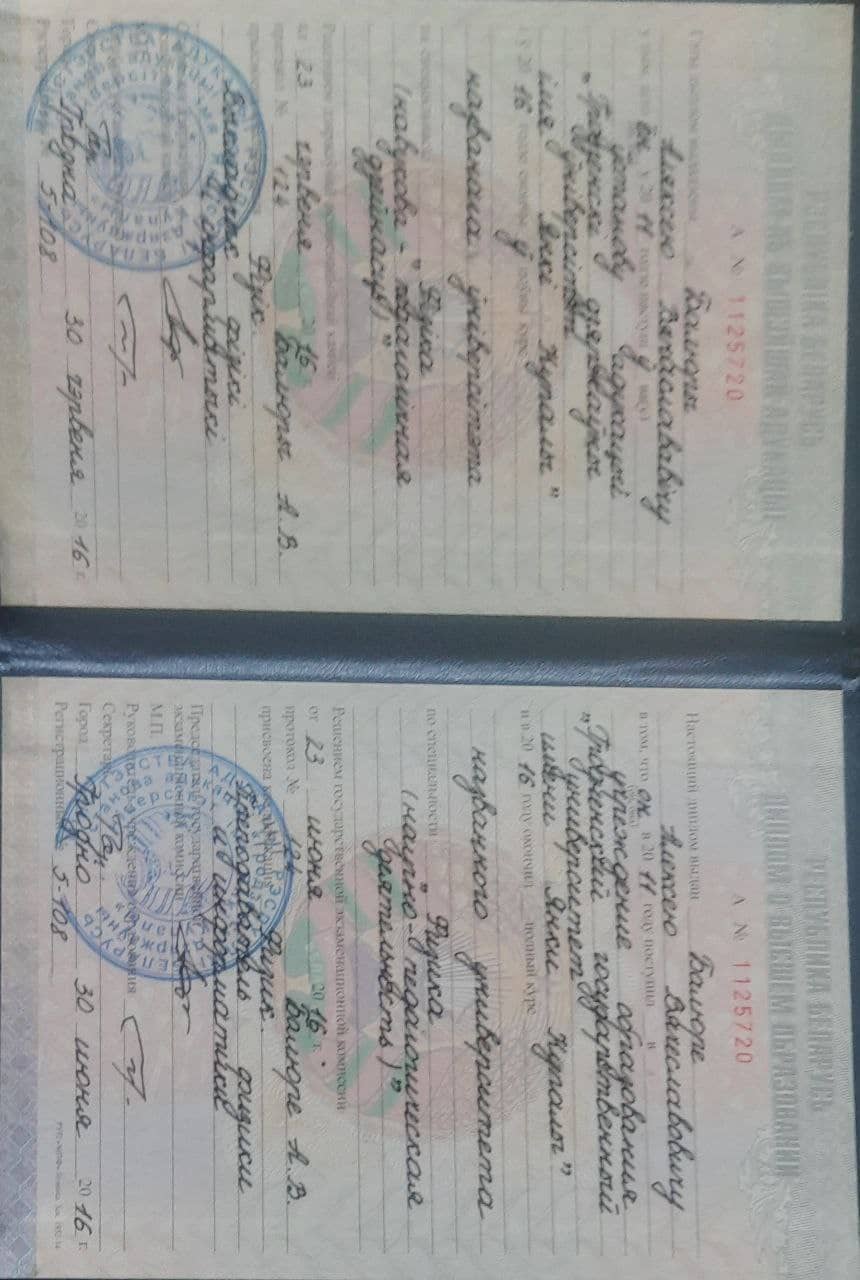 РЭСПУБЛІКА БЕЛАРУСЬ
А № 1125720
Гэты дыплом выдадзены Балюры
Аляксею Вячаслававічу
у тым, што ён у 20 11 годзе паступіў ва(у)
установу адукацыі
„Гродзенскі дзяржаўны
ўніверсітэт
імя Янкі Купалы”
і ў 20 16 годзе скончыў поўны курс
названага ўніверсітэта
па спецыяльнасці „Фізіка
(навукова-педагагічная
дзейнасць)”
Рашэннем дзяржаўнай экзаменацыйнай камісіі
ад 23 чэрвеня 20 16 г.
пратакол № 124 Балюры А.В.
Фізік.
Выкладчык фізікі
і інфарматыкі
Гродна 30 чэрвеня 20 16 г.
5-108
РЕСПУБЛИКА БЕЛАРУСЬ
ДИПЛОМ О ВЫСШЕМ ОБРАЗОВАНИИ
А № 1125720
Настоящий диплом выдан Балюре
Алексею Вячеславовичу
в том, что он в 20 11 году поступил в
учреждение образования
„Гродненский государственный
университет
имени Янки Купалы”
и в 20 16 году окончил полный курс
названного университета
по специальности „Физика
(научно-педагогическая
деятельность)”
Решением государственной экзаменационной комиссии
от 23 июня 20 16 г.
протокол № 124 Балюре А.В.
присвоена квалификация Физик.
Преподаватель физики
и информатики
Председатель государственной
экзаменационной комиссии
М.П.
Руководитель учреждения образования
Секретарь
Город Гродно 30 июня 20 16 г.
Регистрационный № 5-108